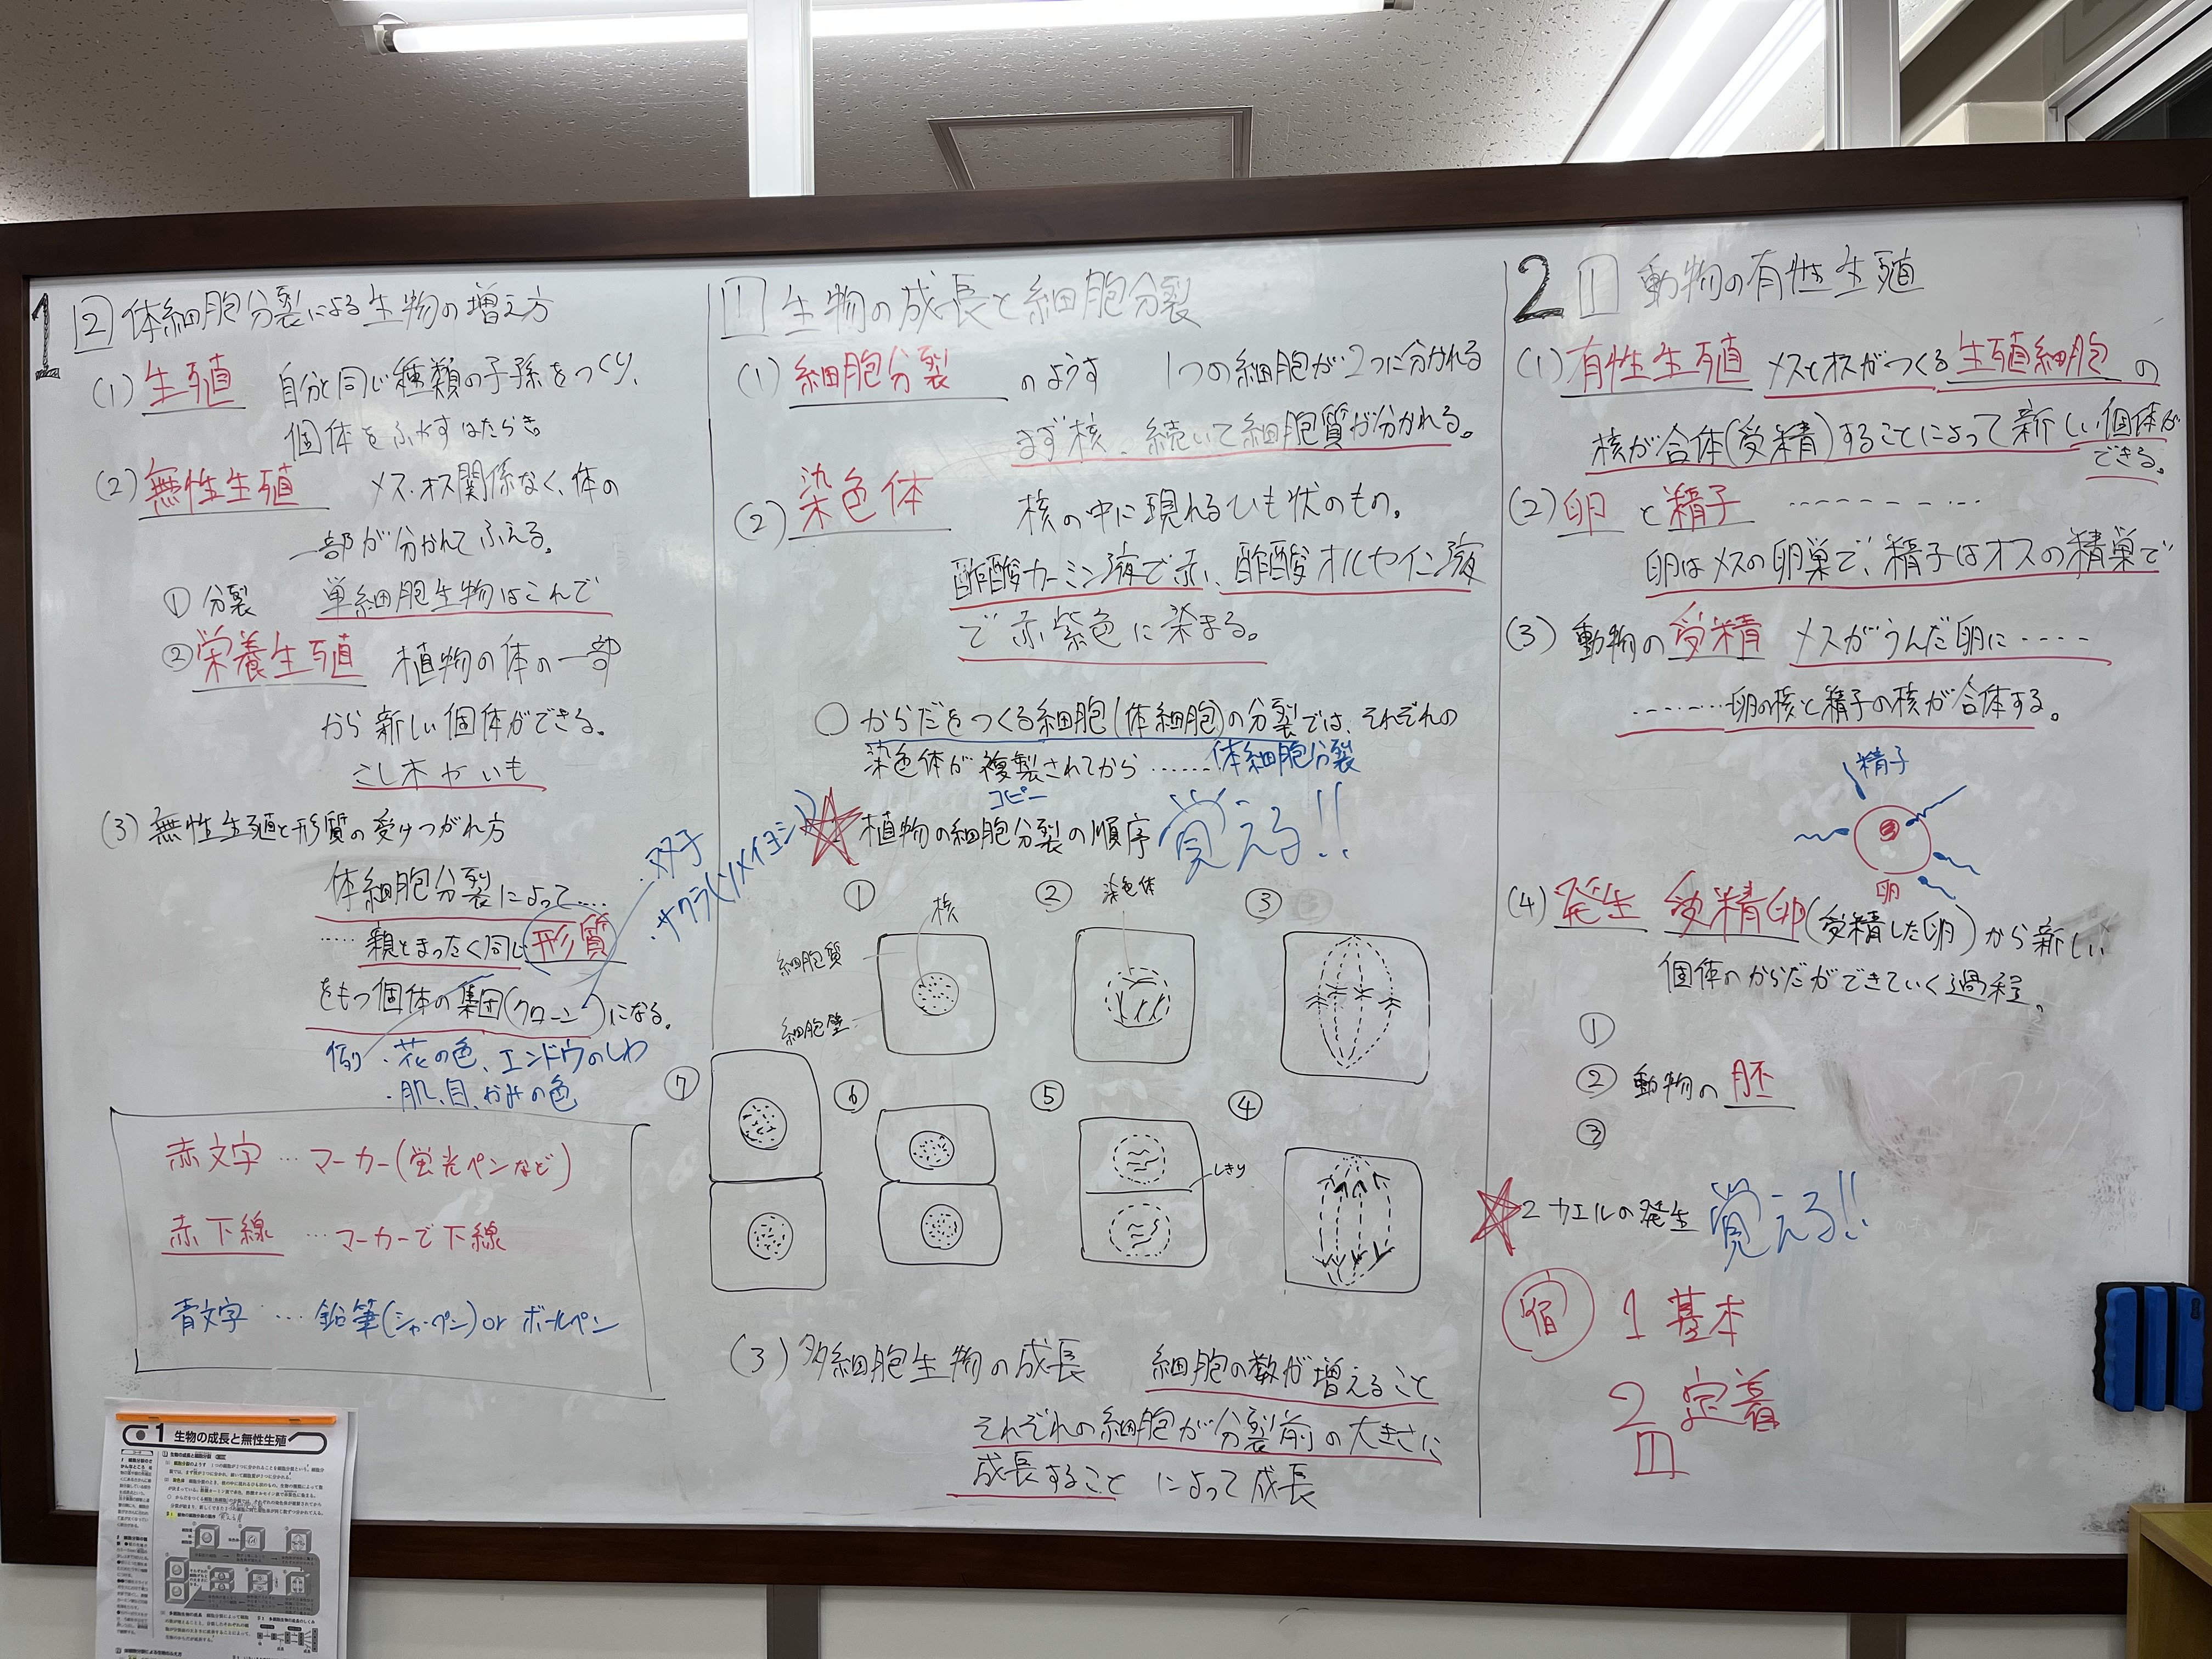 1 ② 体細胞分裂による生物の増え方
(1) 生殖 自分と同じ種類の子孫をつくり、
個体をふやすはたらき。
(2) 無性生殖 メス・オス関係なく、体の
一部が分かれてふえる。
① 分裂 単細胞生物はこれで
② 栄養生殖 植物の体の一部
から新しい個体ができる。
さし木 かいも
(3) 無性生殖と形質の受けつがれ方
体細胞分裂によって‥‥
‥‥ 親とまったく同じ形質
をもつ個体の集団(クローン)になる。
・双子
・サクラ(ソメイヨシノ)
例 ・花の色、エンドウのしわ
・肌、目、かみの色
赤文字 … マーカー(蛍光ペンなど)
赤下線 … マーカーで下線
青文字 … 鉛筆(シャーペン) or ボールペン
1 生物の成長と無性生殖
1 生物の成長と細胞分裂
(1) 細胞分裂 のようす 1つの細胞が2つに分かれる
まず核、続いて細胞質が分かれる。
(2) 染色体 核の中に現れるひも状のもの。
酢酸カーミン液で赤、酢酸オルセイン液
で赤紫色に染まる。
○ からだをつくる細胞(体細胞)の分裂では、それぞれの
染色体が複製されてから ‥‥‥ 体細胞分裂
コピー
☆ 植物の細胞分裂の順序 覚える!!
① ② ③
核 染色体
細胞質
細胞壁
⑦ ⑥ ⑤ ④
しきり
(3) 多細胞生物の成長 細胞の数が増えること
それぞれの細胞が分裂前の大きさに
成長すること によって成長
2 1 動物の有性生殖
(1) 有性生殖 メスとオスがつくる生殖細胞の
核が合体(受精)することによって新しい個体が
できる。
(2) 卵 と 精子 ‥‥‥‥‥
卵はメスの卵巣で、精子はオスの精巣で
(3) 動物の受精 メスがうんだ卵に ‥‥
‥‥‥ 卵の核と精子の核が合体する。
精子
卵
(4) 発生 受精卵(受精した卵)から新しい
個体のからだができていく過程。
①
② 動物の胚
③
☆ 2 カエルの発生 覚える!!
宿 1 基本
2 定着
1